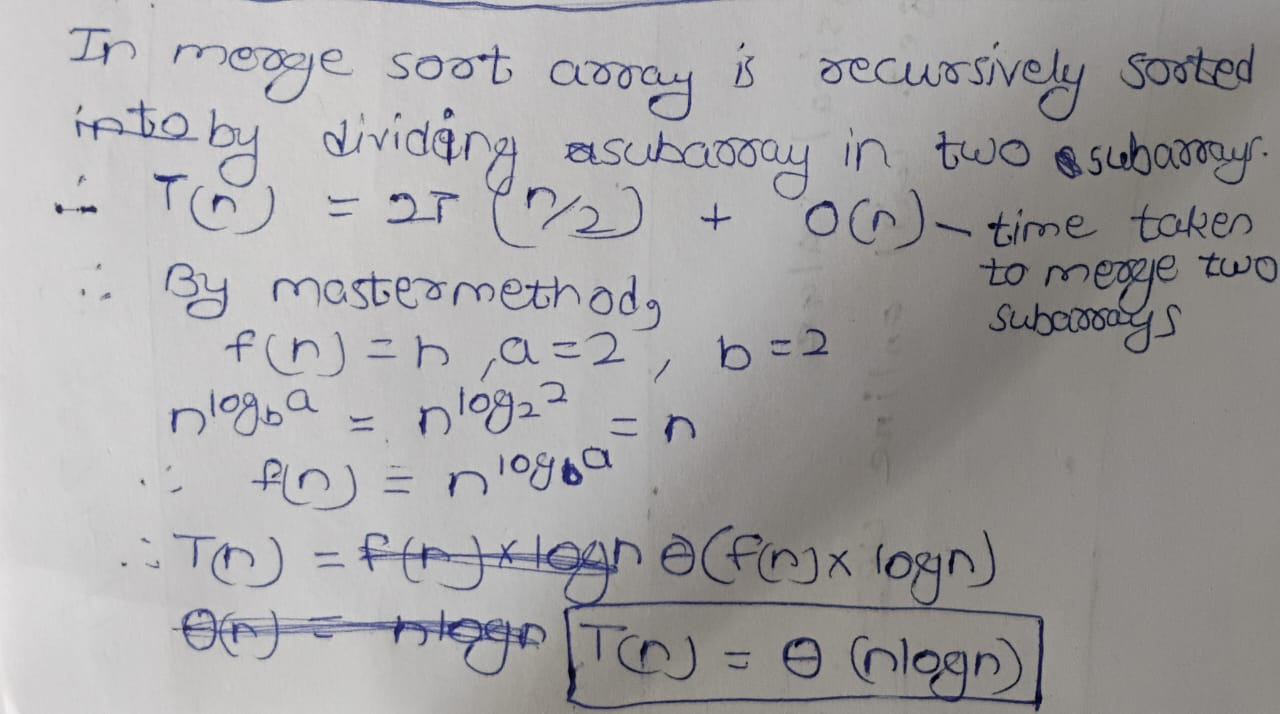 In merge sort array is recursively sorted
into by dividing a subarray in two subarrays.
∴ T(n) = 2T (n/2) + O(n) - time taken
to merge two
subarrays
∴ By master method,
f(n) = n, a = 2, b = 2
n^log_b a = n^log_2 2 = n
∴ f(n) = n^log_b a
∴ T(n) = f(n) x logn θ(f(n) x logn)
θ(n) = nlogn T(n) = θ (nlogn)